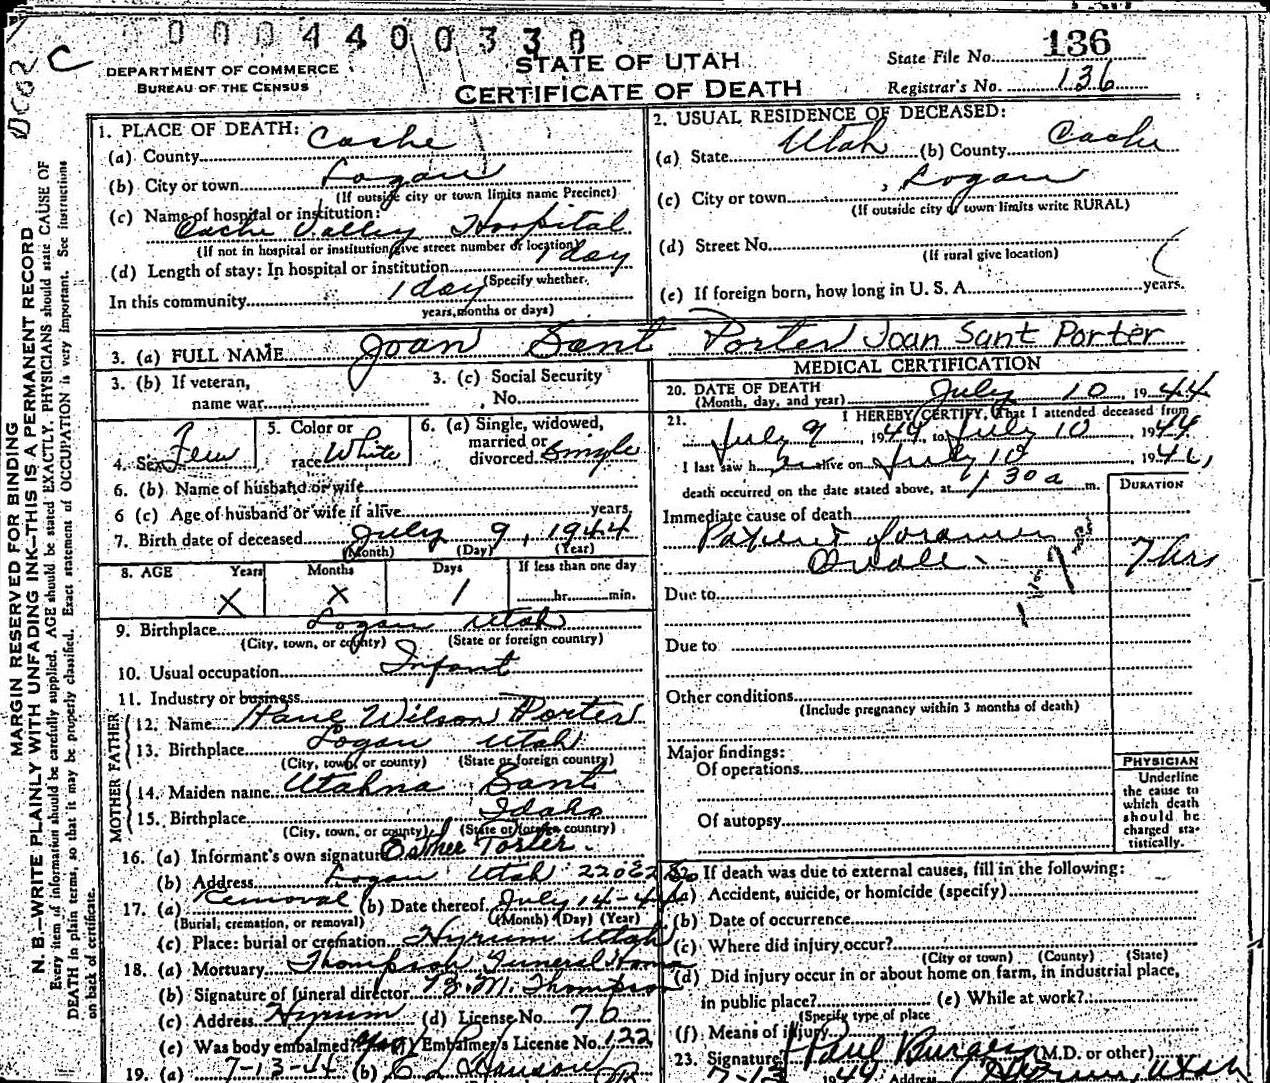 0004400330
136
STATE OF UTAH
State File No.
DEPARTMENT OF COMMERCE
BUREAU OF THE CENSUS
CERTIFICATE OF DEATH
Registrar's No. 136
MARGIN RESERVED FOR BINDING
N. B.—WRITE PLAINLY WITH UNFADING INK—THIS IS A PERMANENT RECORD
Every item of information should be carefully supplied. AGE should be stated EXACTLY. PHYSICIANS should state CAUSE OF
DEATH in plain terms, so that it may be properly classified. Exact statement of OCCUPATION is very important. See instructions
on back of certificate.
1. PLACE OF DEATH:
(a) County Cache
(b) City or town Logan
(If outside city or town limits name Precinct)
(c) Name of hospital or institution:
Cache Valley Hospital
(If not in hospital or institution give street number or location)
(d) Length of stay: In hospital or institution 1 day
(Specify whether
In this community 1 day
years, months or days)
2. USUAL RESIDENCE OF DECEASED:
(a) State Utah (b) County Cache
(c) City or town Logan
(If outside city or town limits write RURAL)
(d) Street No.
(If rural give location)
(e) If foreign born, how long in U. S. A. years.
3. (a) FULL NAME Joan Sant Porter Joan Sant Porter
3. (b) If veteran,
name war
3. (c) Social Security
No.
4. Sex Fem
5. Color or
race White
6. (a) Single, widowed,
married or
divorced Single
6. (b) Name of husband or wife
6 (c) Age of husband or wife if alive years
7. Birth date of deceased July 9, 1944
(Month) (Day) (Year)
8. AGE Years Months Days If less than one day
X X 1 hr. min.
9. Birthplace Logan Utah
(City, town, or county) (State or foreign country)
10. Usual occupation Infant
11. Industry or business
FATHER
12. Name Wilson Porter
13. Birthplace Logan Utah
(City, town, or county) (State or foreign country)
MOTHER
14. Maiden name Utahna Sant
15. Birthplace Idaho
(City, town, or county) (State or foreign country)
16. (a) Informant's own signature Esther Porter
(b) Address Logan Utah
17. (a) Removal (b) Date thereof July 14-44
(Burial, cremation, or removal) (Month) (Day) (Year)
(c) Place: burial or cremation Hyrum Utah
18. (a) Mortuary Thompson Funeral Home
(b) Signature of funeral director M. Thompson
(c) Address Hyrum (d) License No. 76
(e) Was body embalmed? Embalmer's License No. 122
19. (a) 7-13-44 (b)
MEDICAL CERTIFICATION
20. DATE OF DEATH
(Month, day, and year) July 10, 1944
21. I HEREBY CERTIFY, that I attended deceased from
July 9, 1944, to July 10 1944
I last saw h er alive on July 10, 194
death occurred on the date stated above, at 1:30 a m.
DURATION
Immediate cause of death
Patent foramen
Ovale 7 hrs
Due to
Due to
Other conditions
(Include pregnancy within 3 months of death)
Major findings:
Of operations
Of autopsy
PHYSICIAN
Underline
the cause to
which death
should be
charged sta-
tistically.
If death was due to external causes, fill in the following:
(a) Accident, suicide, or homicide (specify)
(b) Date of occurrence
(c) Where did injury occur?
(City or town) (County) (State)
(d) Did injury occur in or about home on farm, in industrial place,
in public place? (e) While at work?
(Specify type of place
(f) Means of injury
23. Signature Paul (M.D. or other)